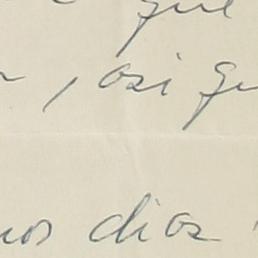 que
, asi qu
nos dias